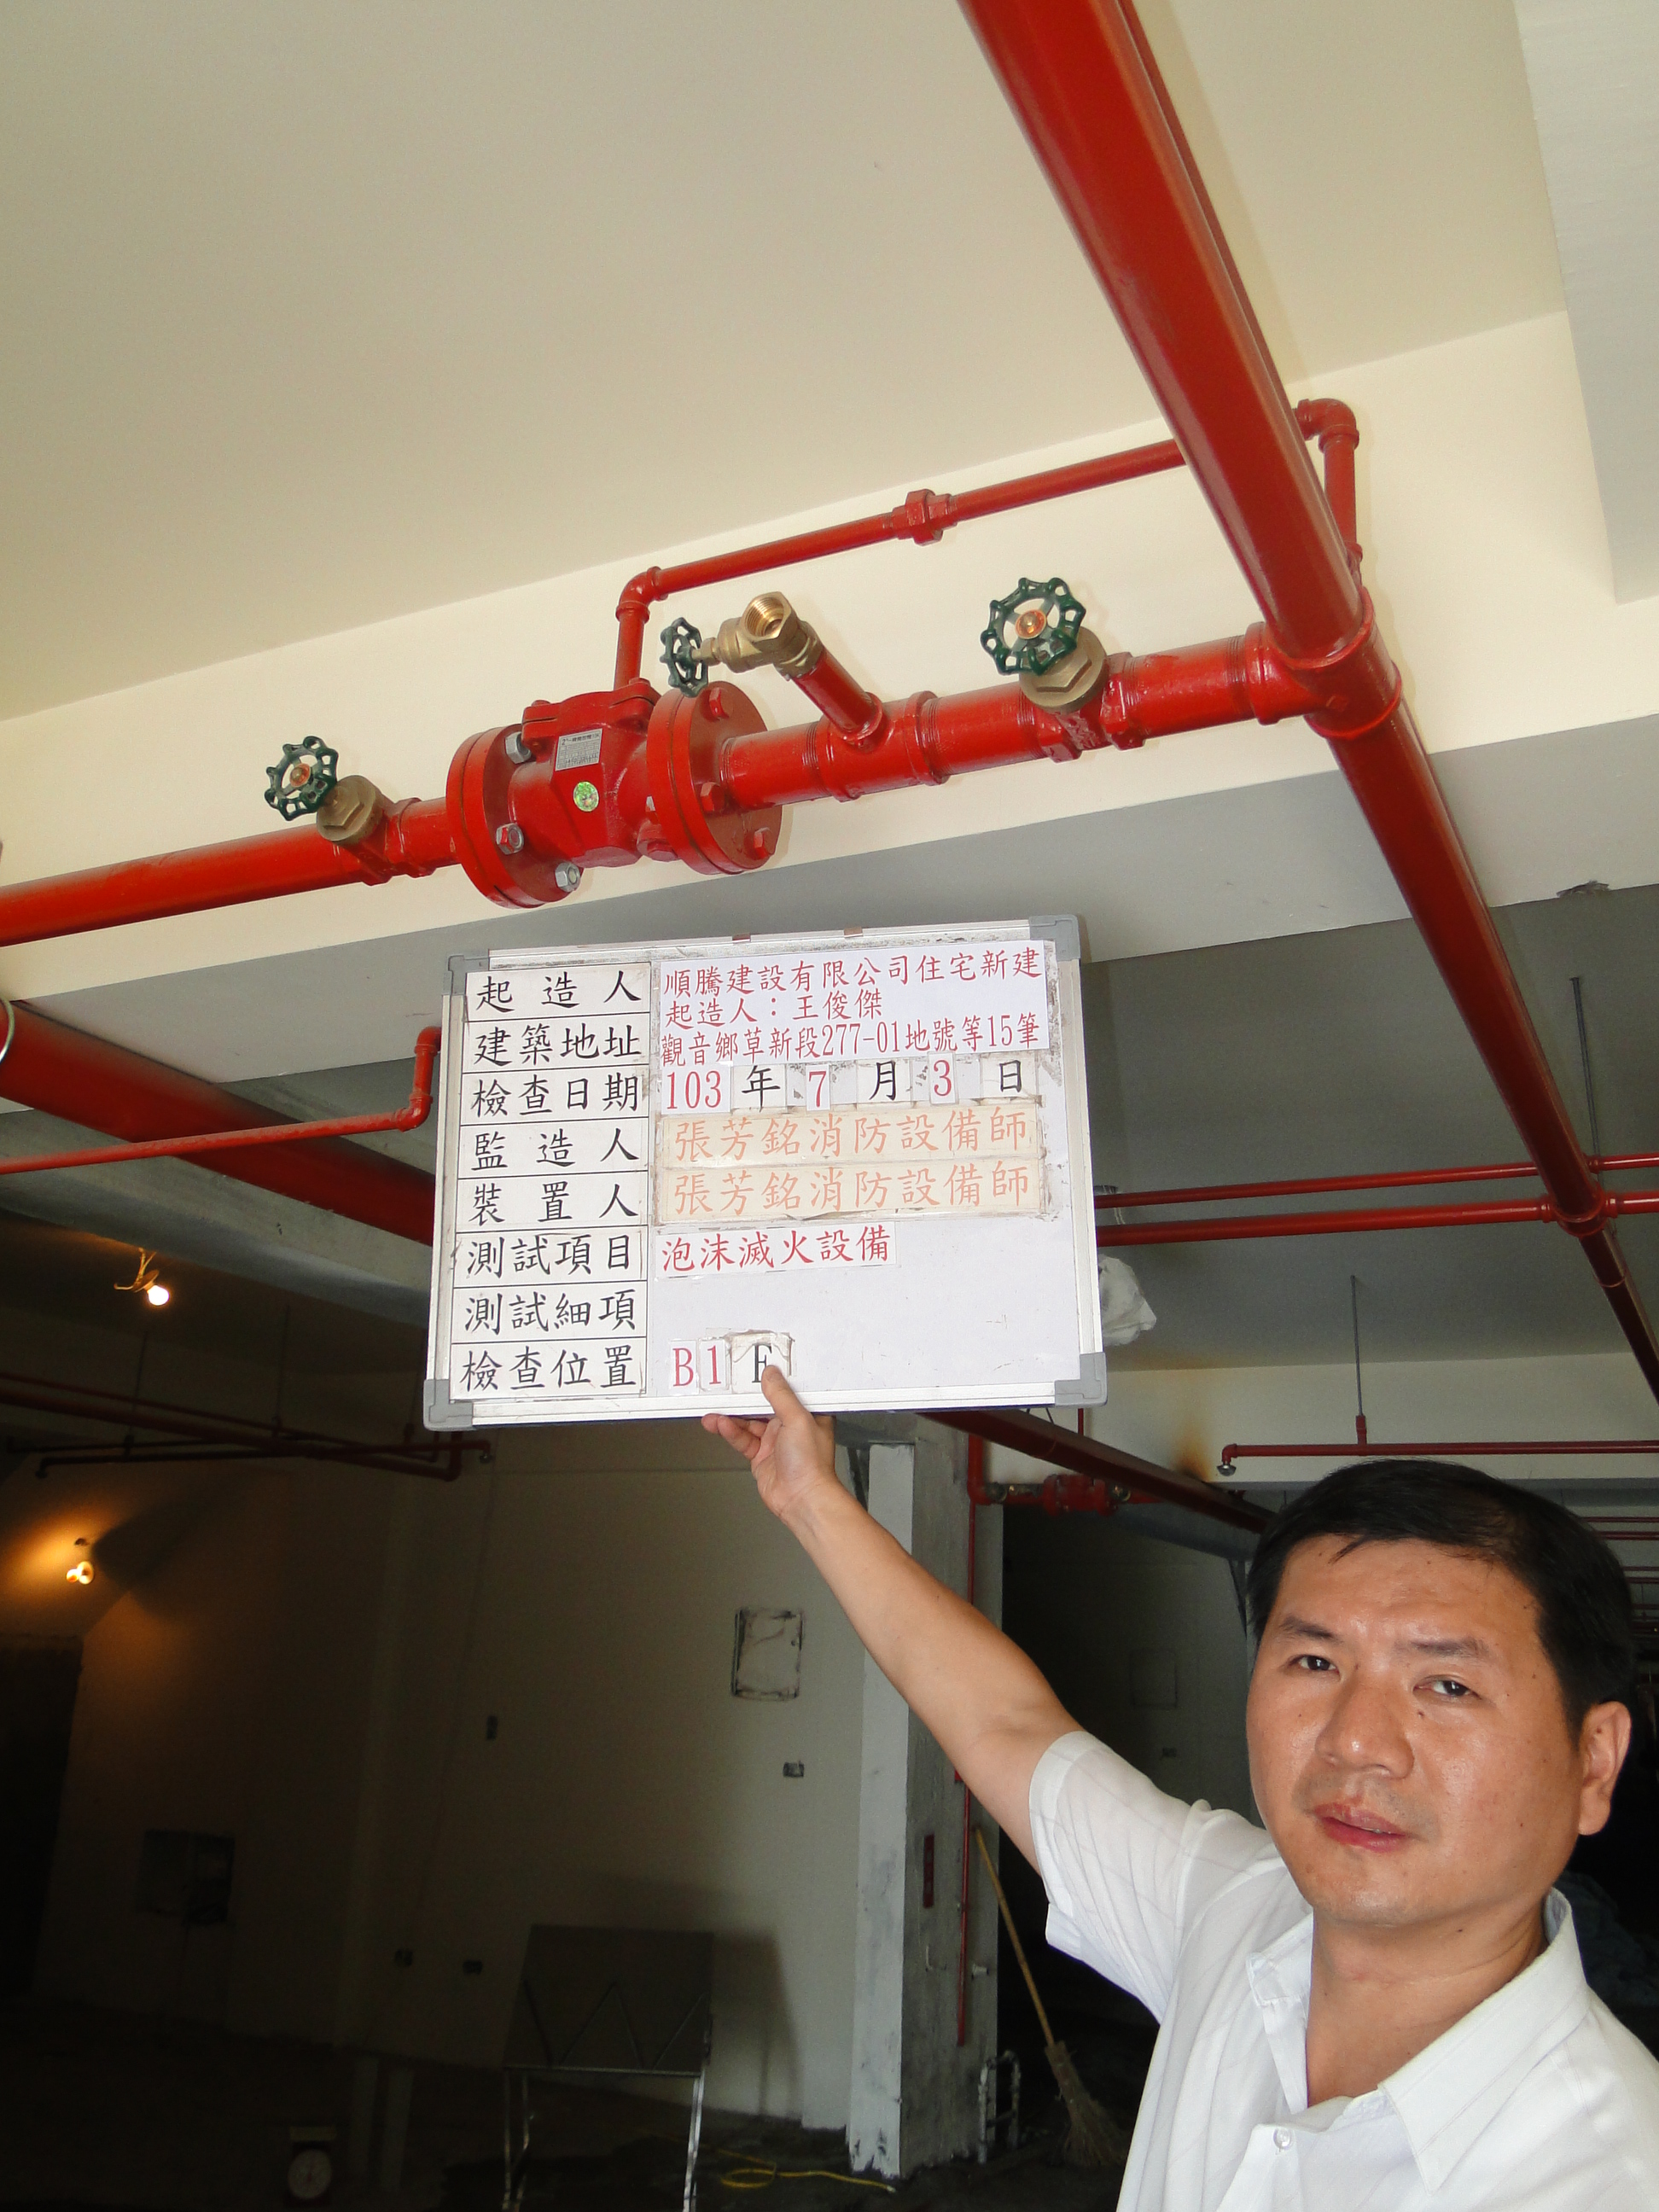 起造人 順騰建設有限公司住宅新建
起造人：王俊傑
建築地址 觀音鄉草新段277-01地號等15筆
檢查日期 103年7月3日
監造人 張芳銘消防設備師
裝置人 張芳銘消防設備師
測試項目 泡沫滅火設備
測試細項
檢查位置 B1F